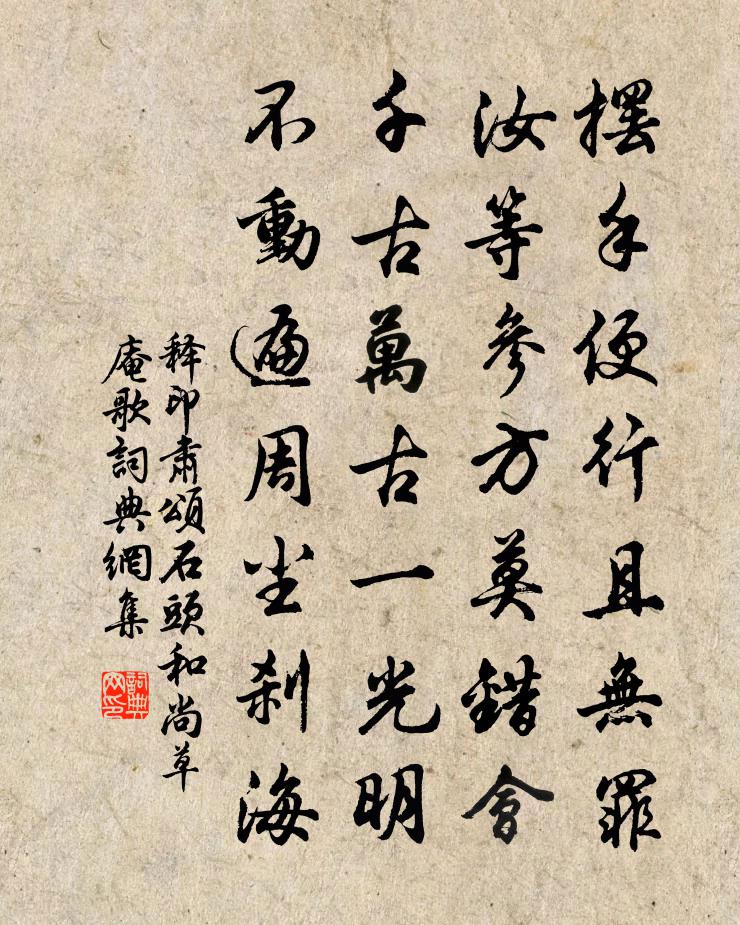 擺手便行且無罪
汝等參方莫錯會
千古萬古一光明
不動遍周尘剎海
释印肅頌石頭和尚草
庵歌詞典網集
詞典
网印